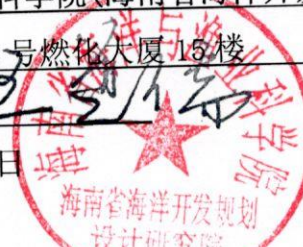 科学院(海南省海洋开
号燃化大厦 15 楼
日
海南省海洋与渔业科学院
海南省海洋开发规划
设计研究院